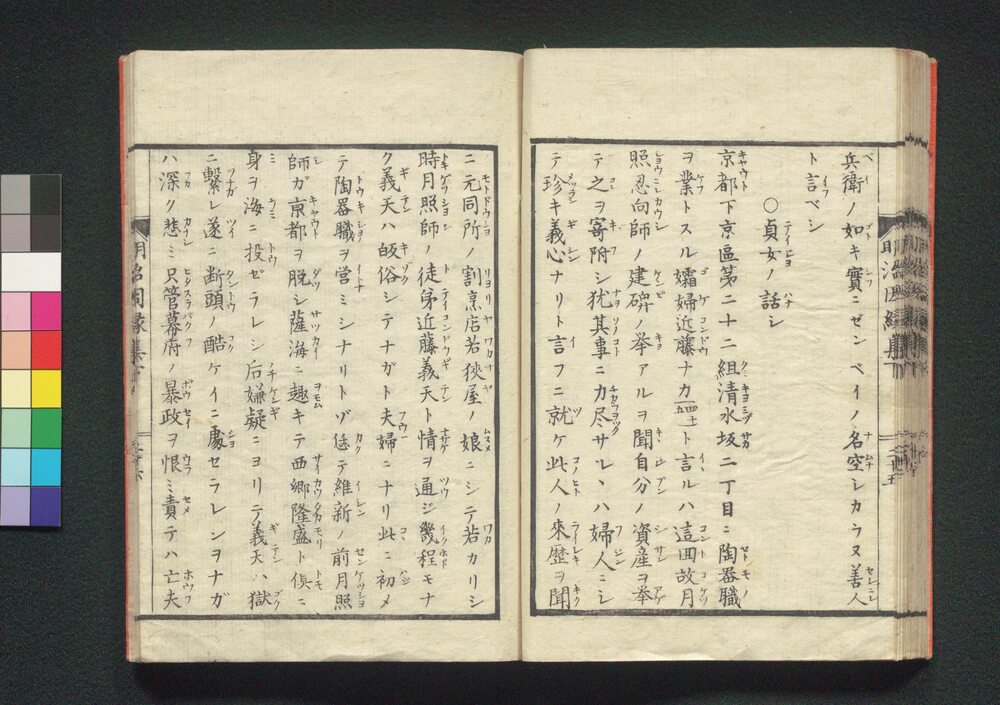 兵衛ノ如キ實ニゼンベイノ名空シカラヌ善人
ト言ベシ
○貞女ノ話シ
京都下京區第二十二組清水坂二丁目ニ陶器職
ヲ業トスル孀婦近藤ナカ五十四ト言ルハ這回故月
照忍向師ノ建碑ノ举アルヲ聞自分ノ資産ヲ举
テ之ヲ寄附シ犹其事ニカ尽サレシハ婦人ニシ
テ珍キ義心ナリト言フニ就ケ此人ノ來歴ヲ聞
ニ元同所ノ割烹店若狹屋ノ娘ニシテ若カリシ
時月照師ノ徒弟近藤義天ト情ヲ通ジ幾程モナ
ク義天ハ皈俗シテナガト夫婦ニナリ此ニ初メ
テ陶器職ヲ営ミシナリトゾ偖テ維新ノ前月照
師ガ京都ヲ脱シ薩海ニ趣キテ西郷隆盛ト俱ニ
身ヲ海ニ投ゼラレシ后嫌疑ニヨリテ義天ハ獄
ニ繋レ遂ニ断頭ノ酷ケイニ處セラレシヲナガ
ハ深ク悲ミ只管幕府ノ暴政ヲ恨ミ責テハ亡夫